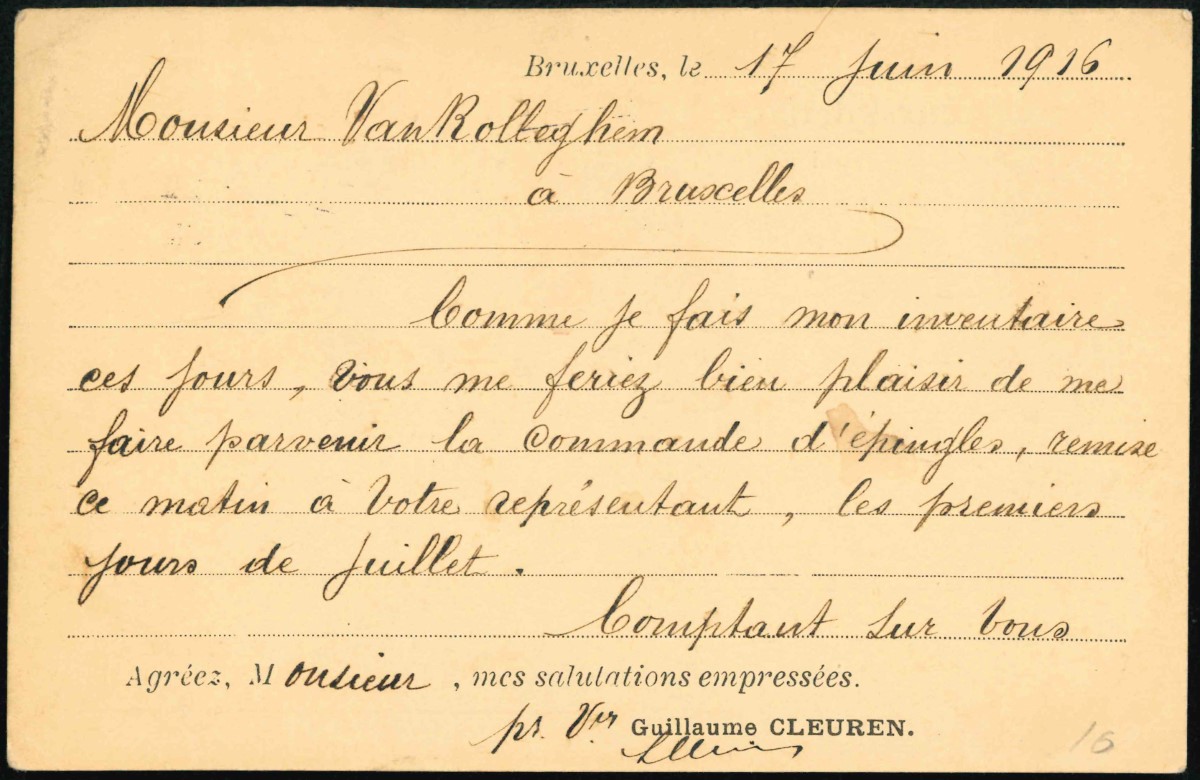 Bruxelles, le 17 Juin 1916
Monsieur VanRolleghem
à Bruxelles
Comme je fais mon inventaire
ces jours, vous me feriez bien plaisir de me
faire parvenir la commande d'épingles, remise
ce matin à Votre représentant, les premiers
jours de Juillet.
Comptant sur Vous
Agréez, Monsieur, mes salutations empressées.
pr. Ver Guillaume CLEUREN.
16